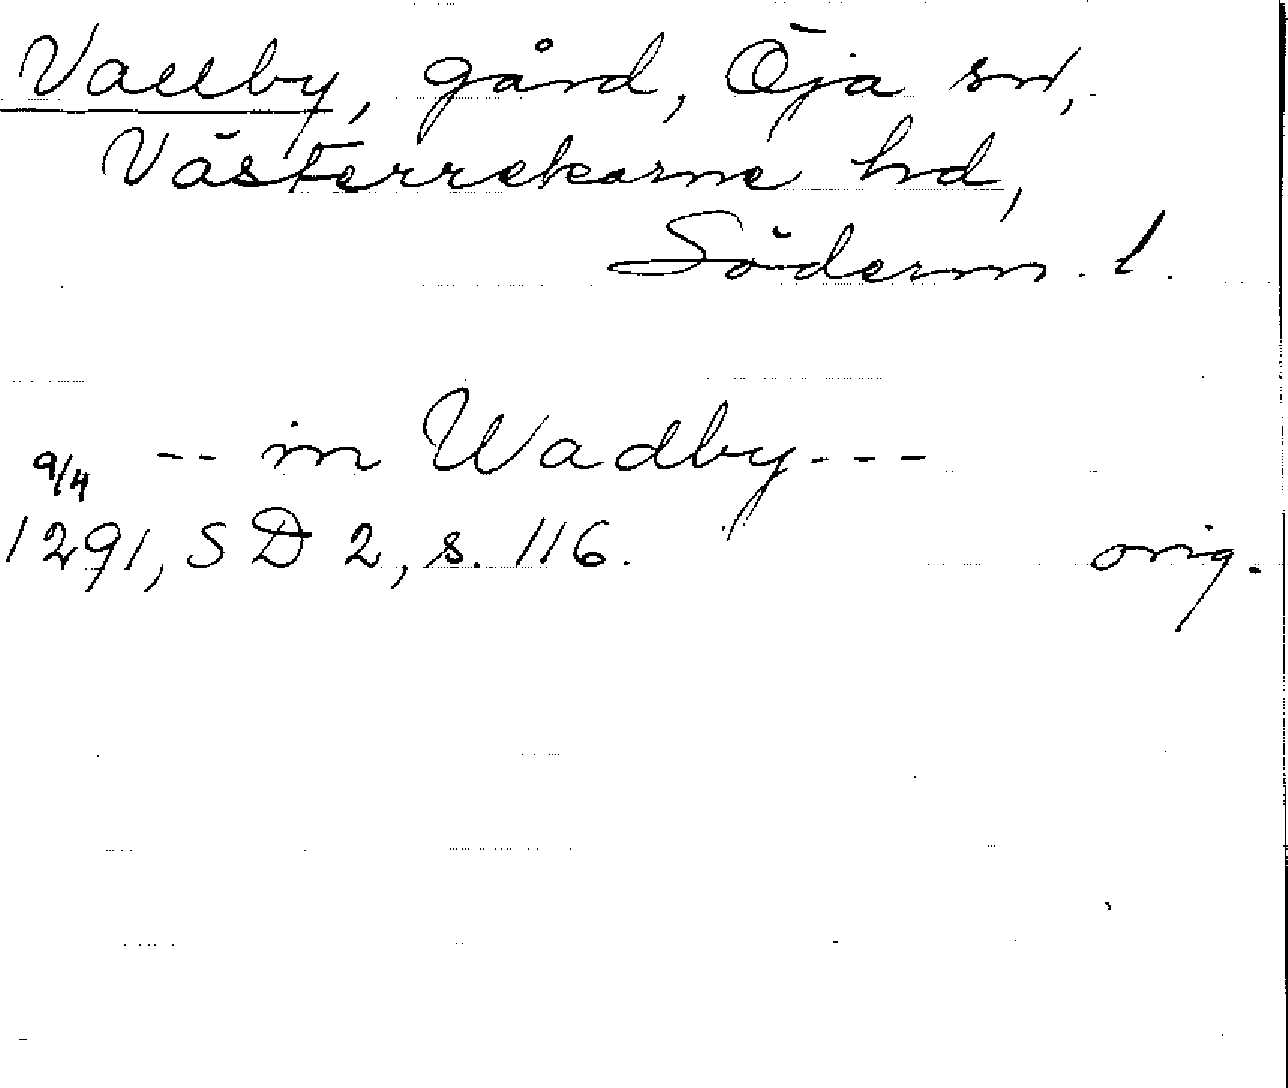 Vallby, gård, Öja sn,
Västerrekarne hd,
Söderm. l.
-- in Wadby ---
9/4
1291, SD 2, s. 116. orig.